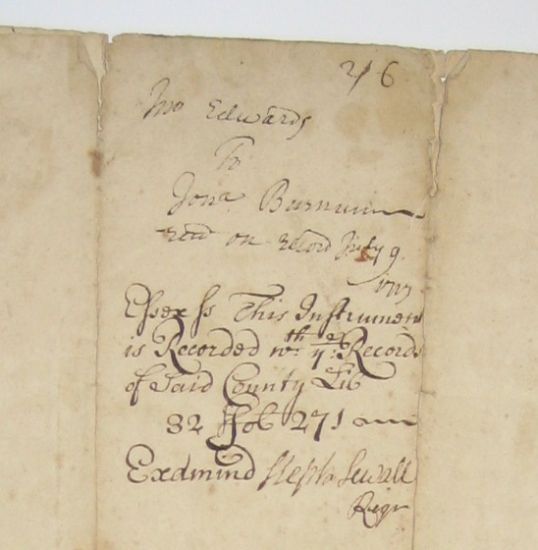 2/6
Jno Edwards
To
Jona Burnum
recd on record July 9.
1717
Essex ss This Instrument
is Recorded wth ye Records
of said County Lib
32 ffol 271 and
Examind Steph Sewall
Regr